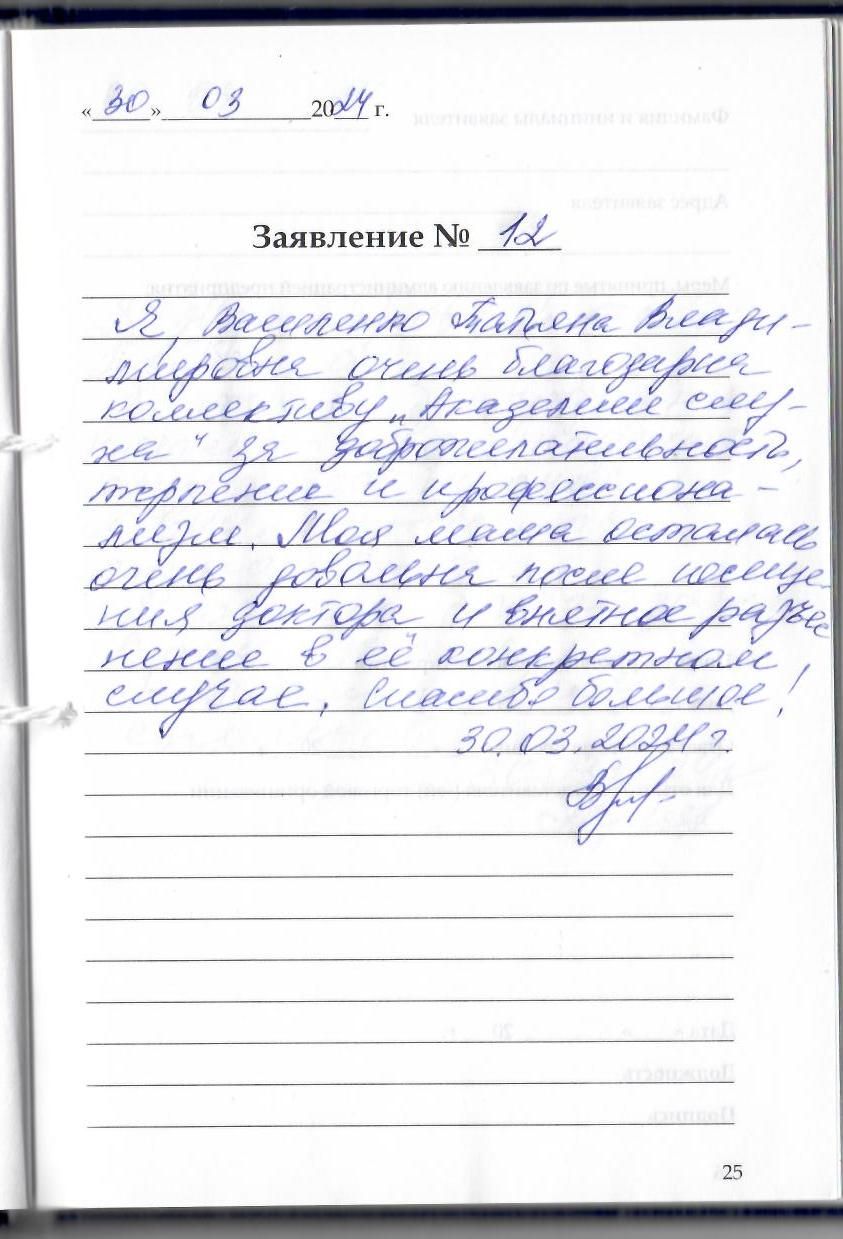 « 30 » 03 2024 г.
Заявление № 12
Я, Василенко Татьяна Влади-
мировна очень благодарна
коллективу „Академии слу-
ха“ за доброжелательность,
терпение и профессиона-
лизм. Моя мама осталась
очень довольна после посеще-
ния доктора и внятное разъяс
нение в её конкретном
случае. Спасибо большое!
30.03.2024 г.
25